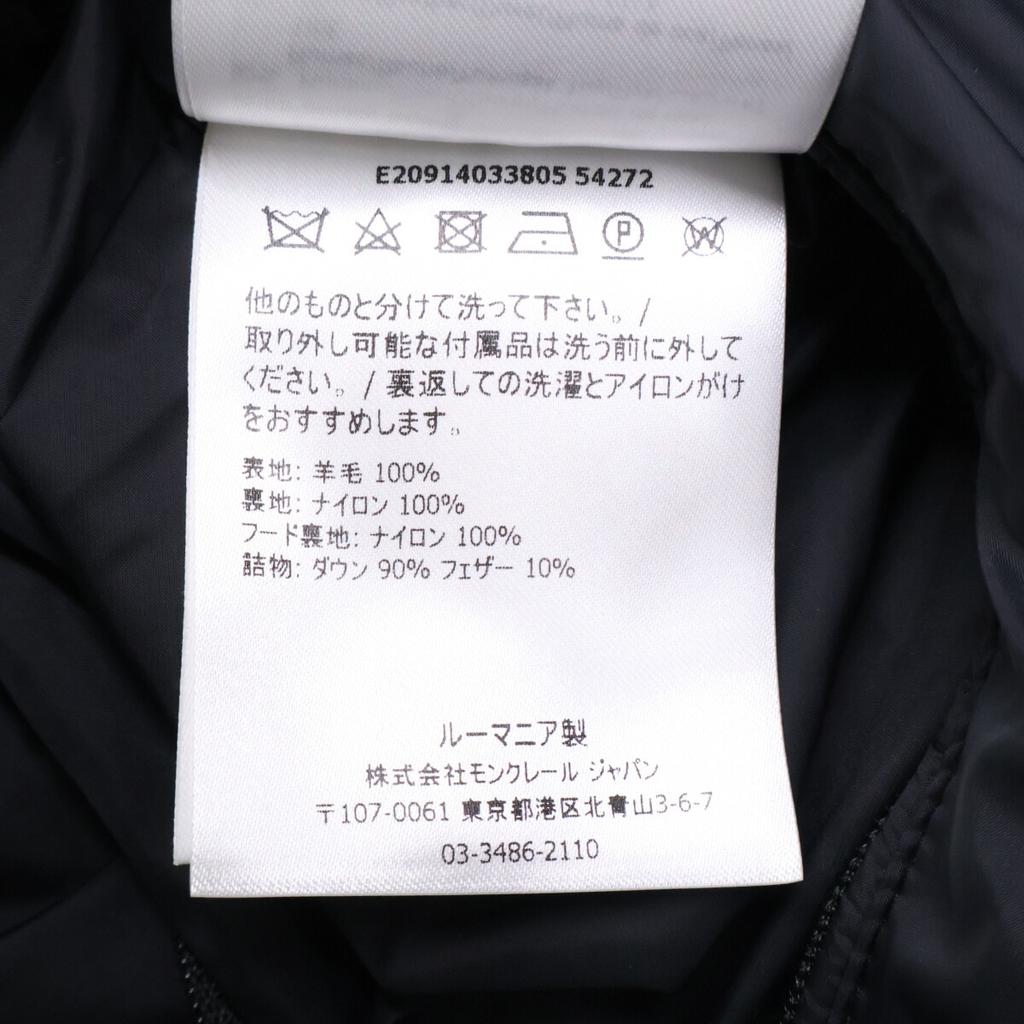 E20914033805 54272
P
W
他のものと分けて洗って下さい。/
取り外し可能な付属品は洗う前に外して
ください。/ 裏返しての洗濯とアイロンがけ
をおすすめします。
表地: 羊毛 100%
裏地: ナイロン 100%
フード裏地: ナイロン 100%
詰物: ダウン 90% フェザー 10%
ルーマニア製
株式会社モンクレール ジャパン
〒107-0061 東京都港区北青山3-6-7
03-3486-2110